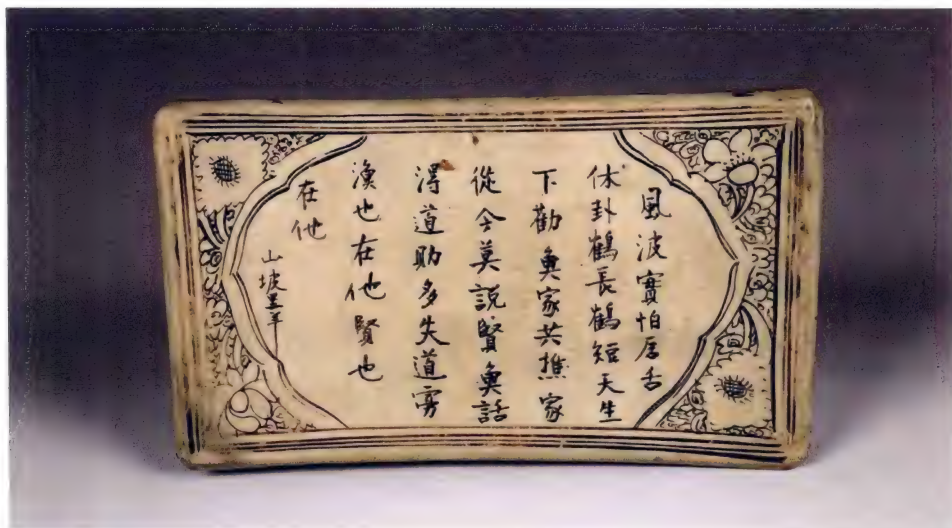 風波實怕唇舌
休卦鶴長鶴短天生
下勸奐家共樵家
從今莫說賢奐話
淂道助多失道寡
漁也在他賢也
在他
山坡里羊